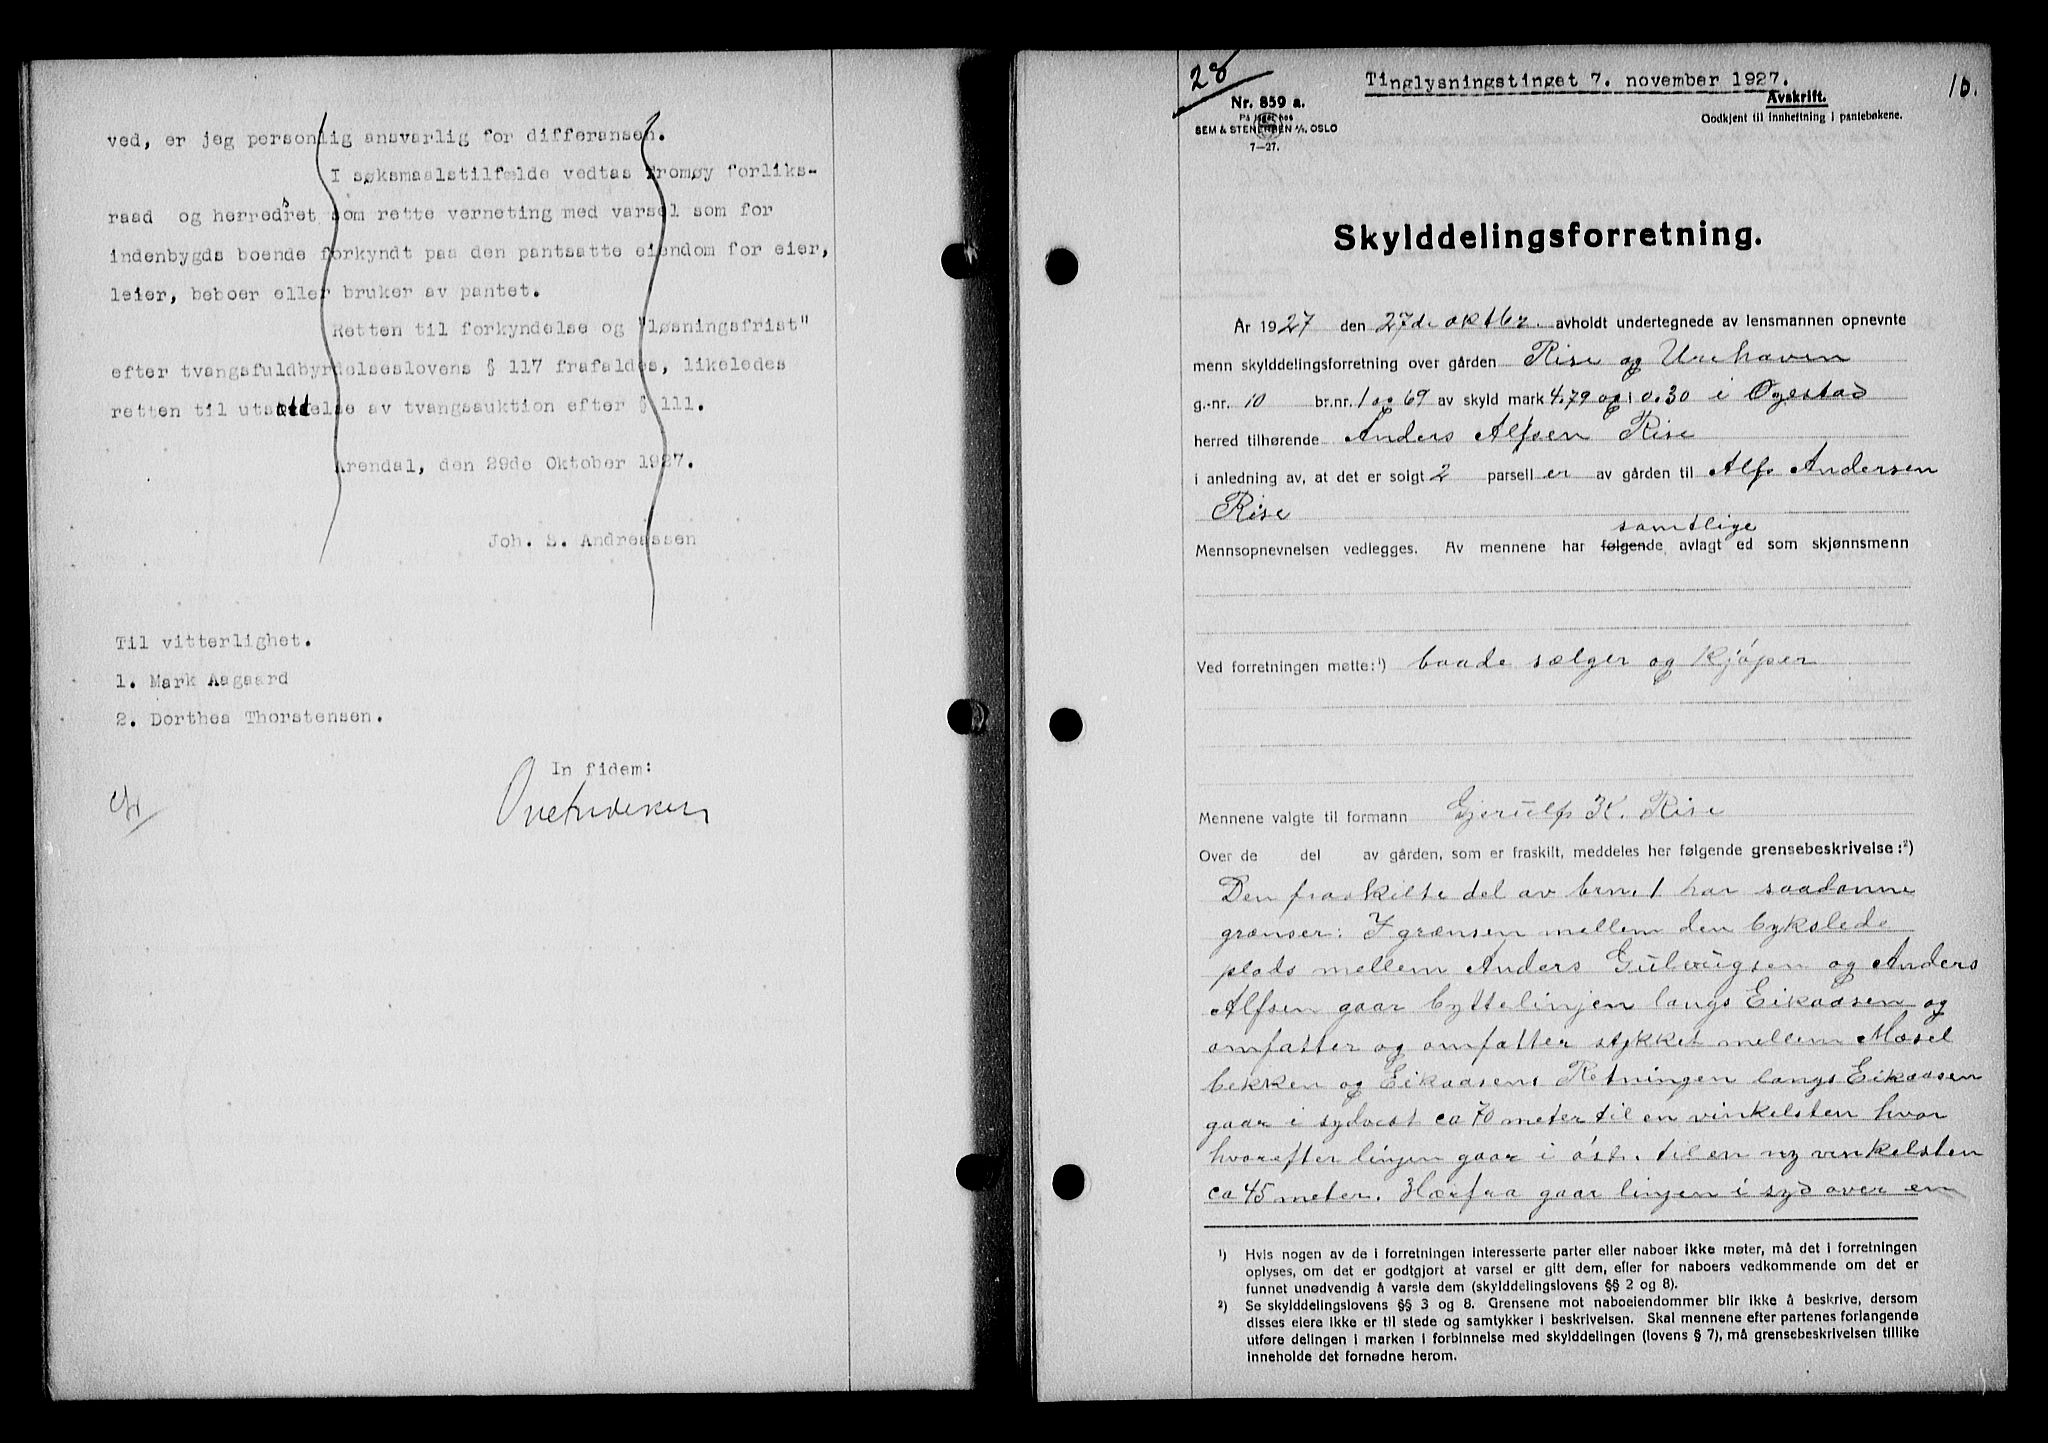 ved, er jeg personlig ansvarlig for differansen.
I søksmaalstilfælde vedtas Tromøy forliks-
raad og herredsret som rette verneting med varsel som for
indenbygds boende forkyndt paa den pantsatte eiendom for eier,
leier, beboer eller bruker av pantet.
Retten til forkyndelse og "løsningsfrist"
efter tvangsfuldbyrdelseslovens § 117 frafaldes, likeledes
retten til utsættelse av tvangsauktion efter § 111.
Arendal, den 29de Oktober 1927.
Joh. S. Andreassen
Til vitterlighet.
1. Mark Aagaard
2. Dorthea Thorstensen.
In fidem:
28
Tinglysningstinget 7. november 1927.
10.
Nr. 859 a.
På lager hos
SEM & STENERSEN A/S. OSLO
7—27.
Avskrift.
Godkjent til innheftning i pantebøkene.
Skylddelingsforretning.
År 1927 den 27de oktbr. avholdt undertegnede av lensmannen opnevnte
menn skylddelingsforretning over gården Rise og Urehaven
g.-nr. 10 br.nr. 1 og 69 av skyld mark 4.79 og 0.30 i Øyestad
herred tilhørende Anders Alfsen Rise
i anledning av, at det er solgt 2 parsell er av gården til Alf Andersen
Rise
samtlige
Mennsopnevnelsen vedlegges. Av mennene har følgende avlagt ed som skjønnsmenn
Ved forretningen møtte:¹) baade sælger og kjøper
Mennene valgte til formann Gjerulf K. Rise
Over de del av gården, som er fraskilt, meddeles her følgende grensebeskrivelse:²)
Den fraskilte del av brn. 1 har saadanne
grænser: I grænsen mellem den bykslede
plads mellem Anders Gulvugsen og Anders
Alfsen gaar byttelinjen langs Eikaasen og
omfatter og omfatter stykket mellem Mæsel
bekken og Eikaasen. Retningen langs Eikaasen
gaar i sydvest ca 70 meter til en vinkelsten hvor
hvorefter linjen gaar i øst. til en ny vinkelsten
ca 45 meter. Herfra gaar linjen i syd over en
¹) Hvis nogen av de i forretningen interesserte parter eller naboer ikke møter, må det i forretningen
oplyses, om det er godtgjort at varsel er gitt dem, eller for naboers vedkommende om det er
funnet unødvendig å varsle dem (skylddelingslovens §§ 2 og 8).
²) Se skylddelingslovens §§ 3 og 8. Grensene mot naboeiendommer blir ikke å beskrive, dersom
disses eiere ikke er til stede og samtykker i beskrivelsen. Skal mennene efter partenes forlangende
utføre delingen i marken i forbinnelse med skylddelingen (lovens § 7), må grensebeskrivelsen tillike
inneholde det fornødne herom.